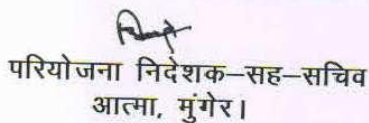 परियोजना निदेशक–सह–सचिव
आत्मा, मुंगेर।